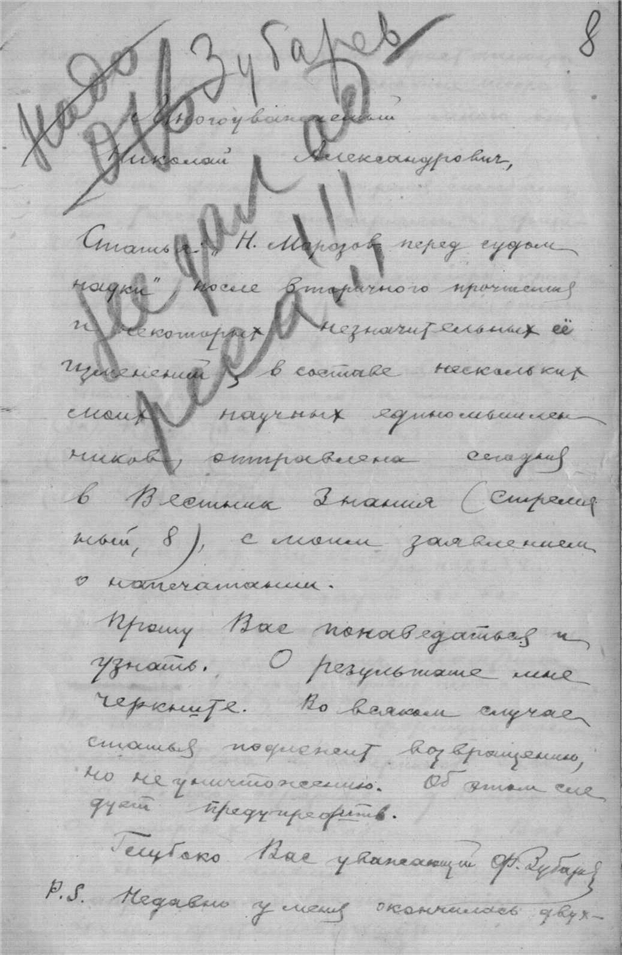 8
Надо
Отв
Зубарев
не дал ад
реса!!!!!!
Многоуважаемый
Николай Александрович,
Статья: „Н. Морозов перед судом
науки" после вторичного прочтения
и некоторых незначительных её
изменений, в составе нескольких
моих научных единомышлен-
ников, отправлена сегодня
в Вестник Знания (Стремян
ный, 8), с моим заявлением
о напечатании.
Прошу Вас понаведаться и
узнать. О результате мне
черкните. Во всяком случае
статья подлежит возвращению,
но не уничтожению. Об этом сле
дует предупредить.
Глубоко Вас уважающий Ф. Зубарев
P.S. Недавно у меня окончилась двух-